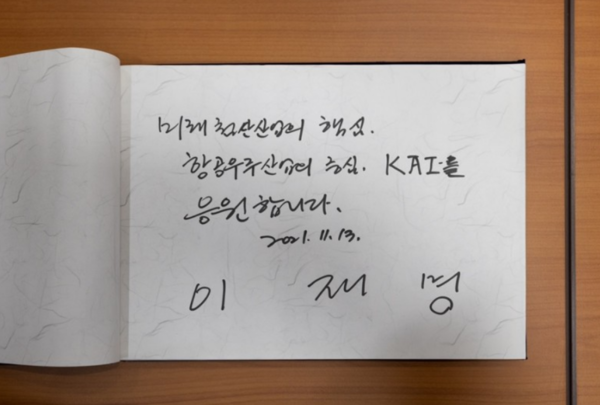 미래 첨단산업의 핵심.
항공우주산업의 중심. KAI를
응원합니다.
2021. 11. 13.
이 재 명